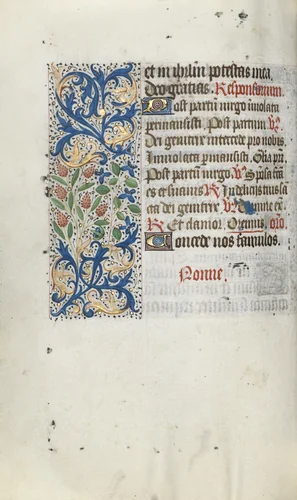 et in ihrlm potestas mea.
Deo gratias. Responsorium
Post partū virgo inviolata
permansisti. Post partum. V.
Dei genitrix intercede pro nobis.
Inviolata pmansisti. Gloria pri
Post partū virgo. V. Speciosa fca
es et suavis R. In delitiis tuis sca
cta dei genitrix. V. Domine ex.
R. Et clamor. Oremus. oro.
Concede nos famulos.
Nonne